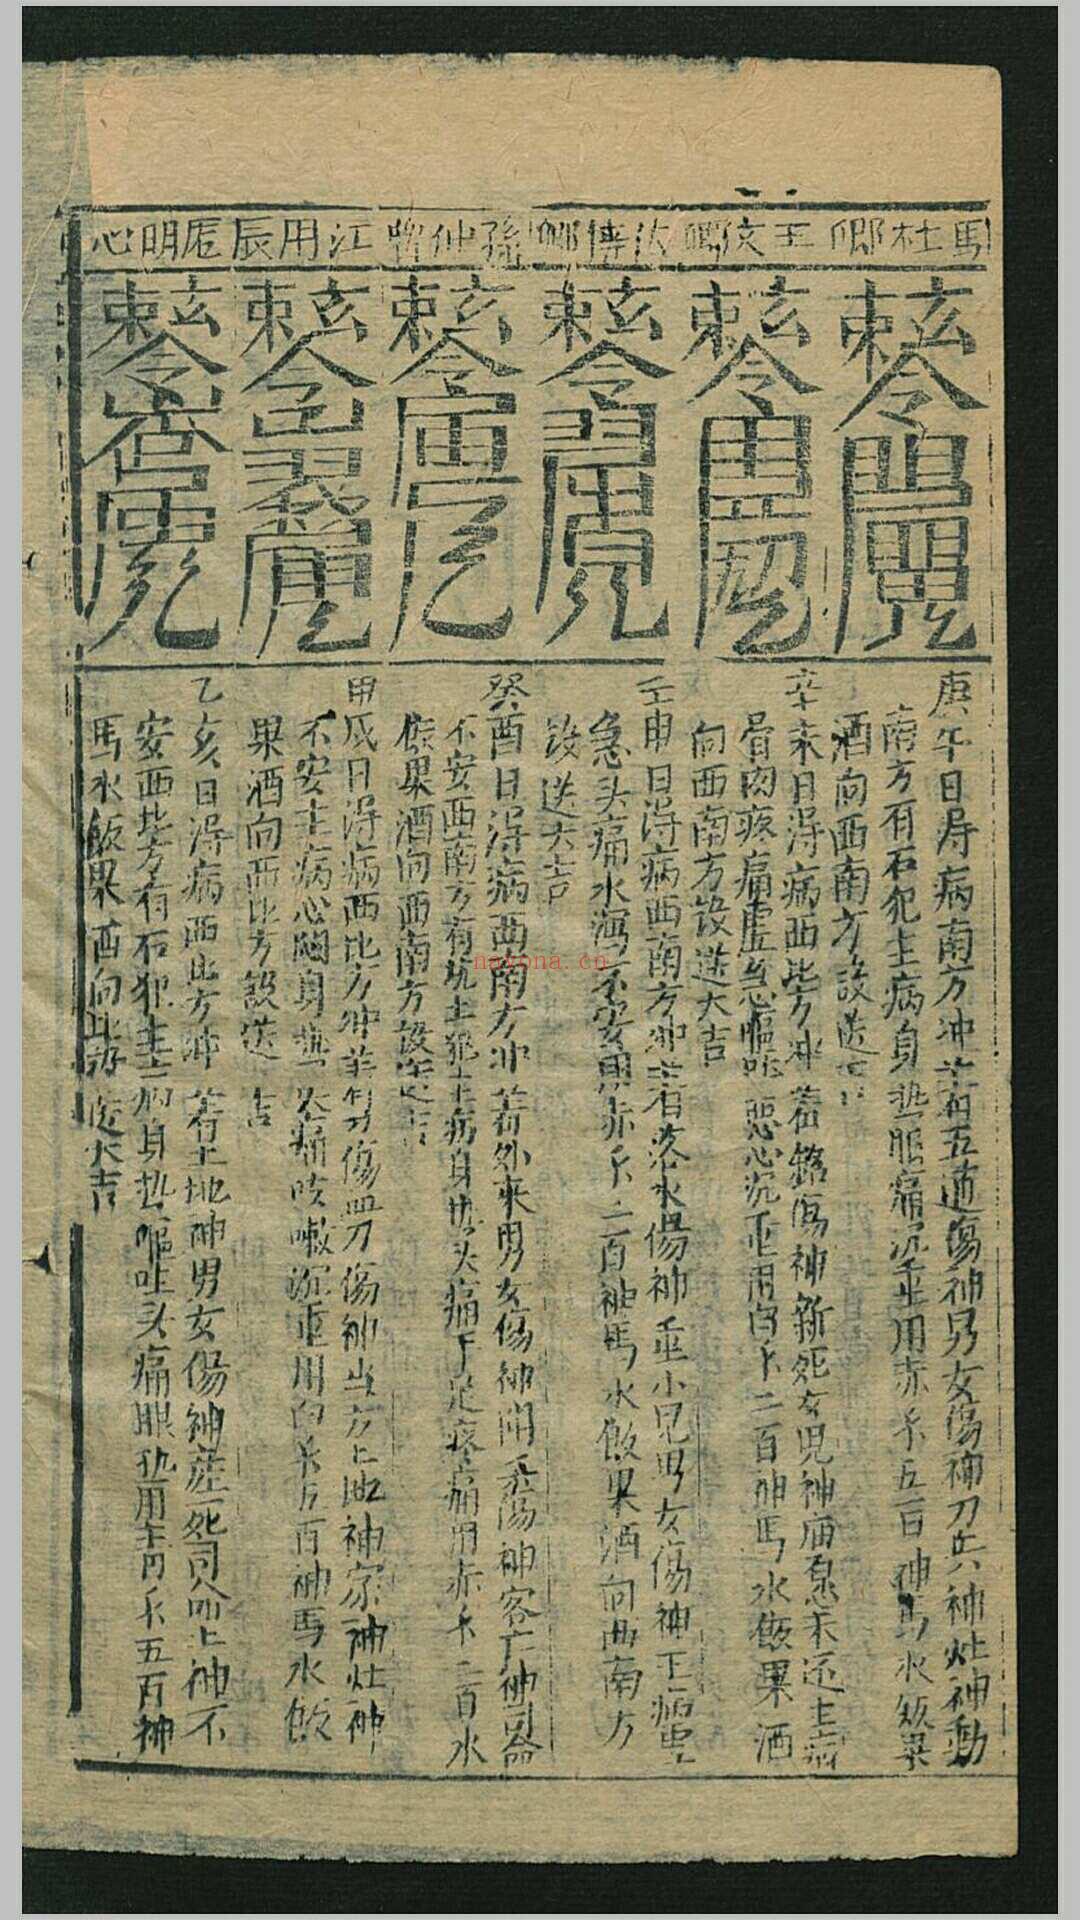 馬杜鄉
王文卿
孫仲
江用辰
扈明心
玄敕令
玄敕令
玄敕令
玄敕令
玄敕令
玄敕令
庚午日得病南方冲着五道傷神男女傷神刀兵神灶神動
南方有石犯主病身热眼痛沉重用赤千五百神馬水飯果
酒向西南方設送
辛未日得病西北方冲着路傷神新死女兒神庙愿未还主病
骨肉疼痛虚急嘔吐惡心沉重用白千二百神馬水飯果酒
向西南方設送大吉
壬申日得病西南方冲着落水傷神小兒男女傷神主病
急头痛水瀉不安用赤千二百神馬水飯果酒向西南方
設送大吉
癸酉日得病西南方冲着外来男女傷神陽神客亡神司命
不安西南方有坑土犯主病身热头痛手足疼痛用赤千二百水
飯果酒向西南方設送吉
甲戌日得病西北方冲着男傷血刀傷神当方土地神家神灶神
不安主病心悶身热头痛咳嗽沉重用白千五百神馬水飯
果酒向西北方設送吉
乙亥日得病西北方冲着土地神男女傷神产死司命土神不
安西北方有石犯主病身热嘔吐头痛眼热用青千五百神
馬水飯果酒向北方設送大吉
nayona.cn